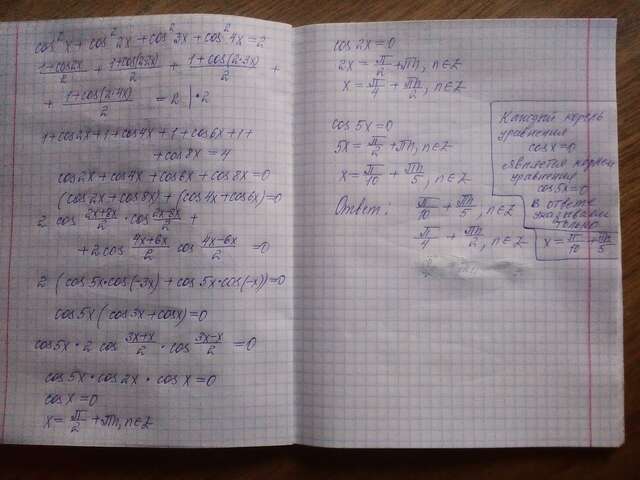 cos²x + cos²2x + cos²3x + cos²4x = 2
(1+cos2x)/2 + (1+cos(2·2x))/2 + (1+cos(2·3x))/2 +
+ (1+cos(2·4x))/2 = 2 | ·2
1+cos2x+1+cos4x+1+cos6x+1+
+cos8x=4
cos2x+cos4x+cos6x+cos8x=0
(cos2x+cos8x)+(cos4x+cos6x)=0
2 cos (2x+8x)/2 · cos (2x-8x)/2 +
+2cos (4x+6x)/2 cos (4x-6x)/2 =0
2 (cos5x·cos(-3x)+cos5x·cos(-x))=0
cos5x(cos3x+cosx)=0
cos5x·2cos (3x+x)/2 · cos (3x-x)/2 =0
cos5x·cos2x·cosx=0
cosx=0
x=π/2+πn, n∈Z
cos2x=0
2x=π/2+πn, n∈Z
x=π/4+πn/2, n∈Z
cos5x=0
5x=π/2+πn, n∈Z
x=π/10+πn/5, n∈Z
Ответ: π/10+πn/5, n∈Z
π/4+πn/2, n∈Z
Каждый корень
уравнения
cosx=0
является корнем
уравнения
cos5x=0
В ответе
указываем
только
x=π/10+πn/5